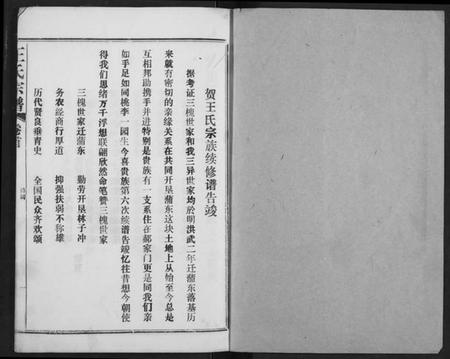 贺王氏宗族续修谱告竣
据考证三槐世家和我三异世家均於明洪武二年迁蒲东落基历
来就有密切的亲缘关系在共同开垦蒲东这块土地上从始至今总是
互相帮助携手并进特别是贵族有一支系住在郝家门更是同我们亲
如手足如同桃李一园生今喜贵族第六次续谱告竣忆往昔想今朝使
得我们思绪万千浮想联翩欣然命笔赞三槐世家
三槐世家迁蒲东 勤劳开垦林子冲
务农经商行厚道 抑强扶弱不称雄
历代贤良垂青史 全国民众齐欢颂
王氏宗谱 卷首